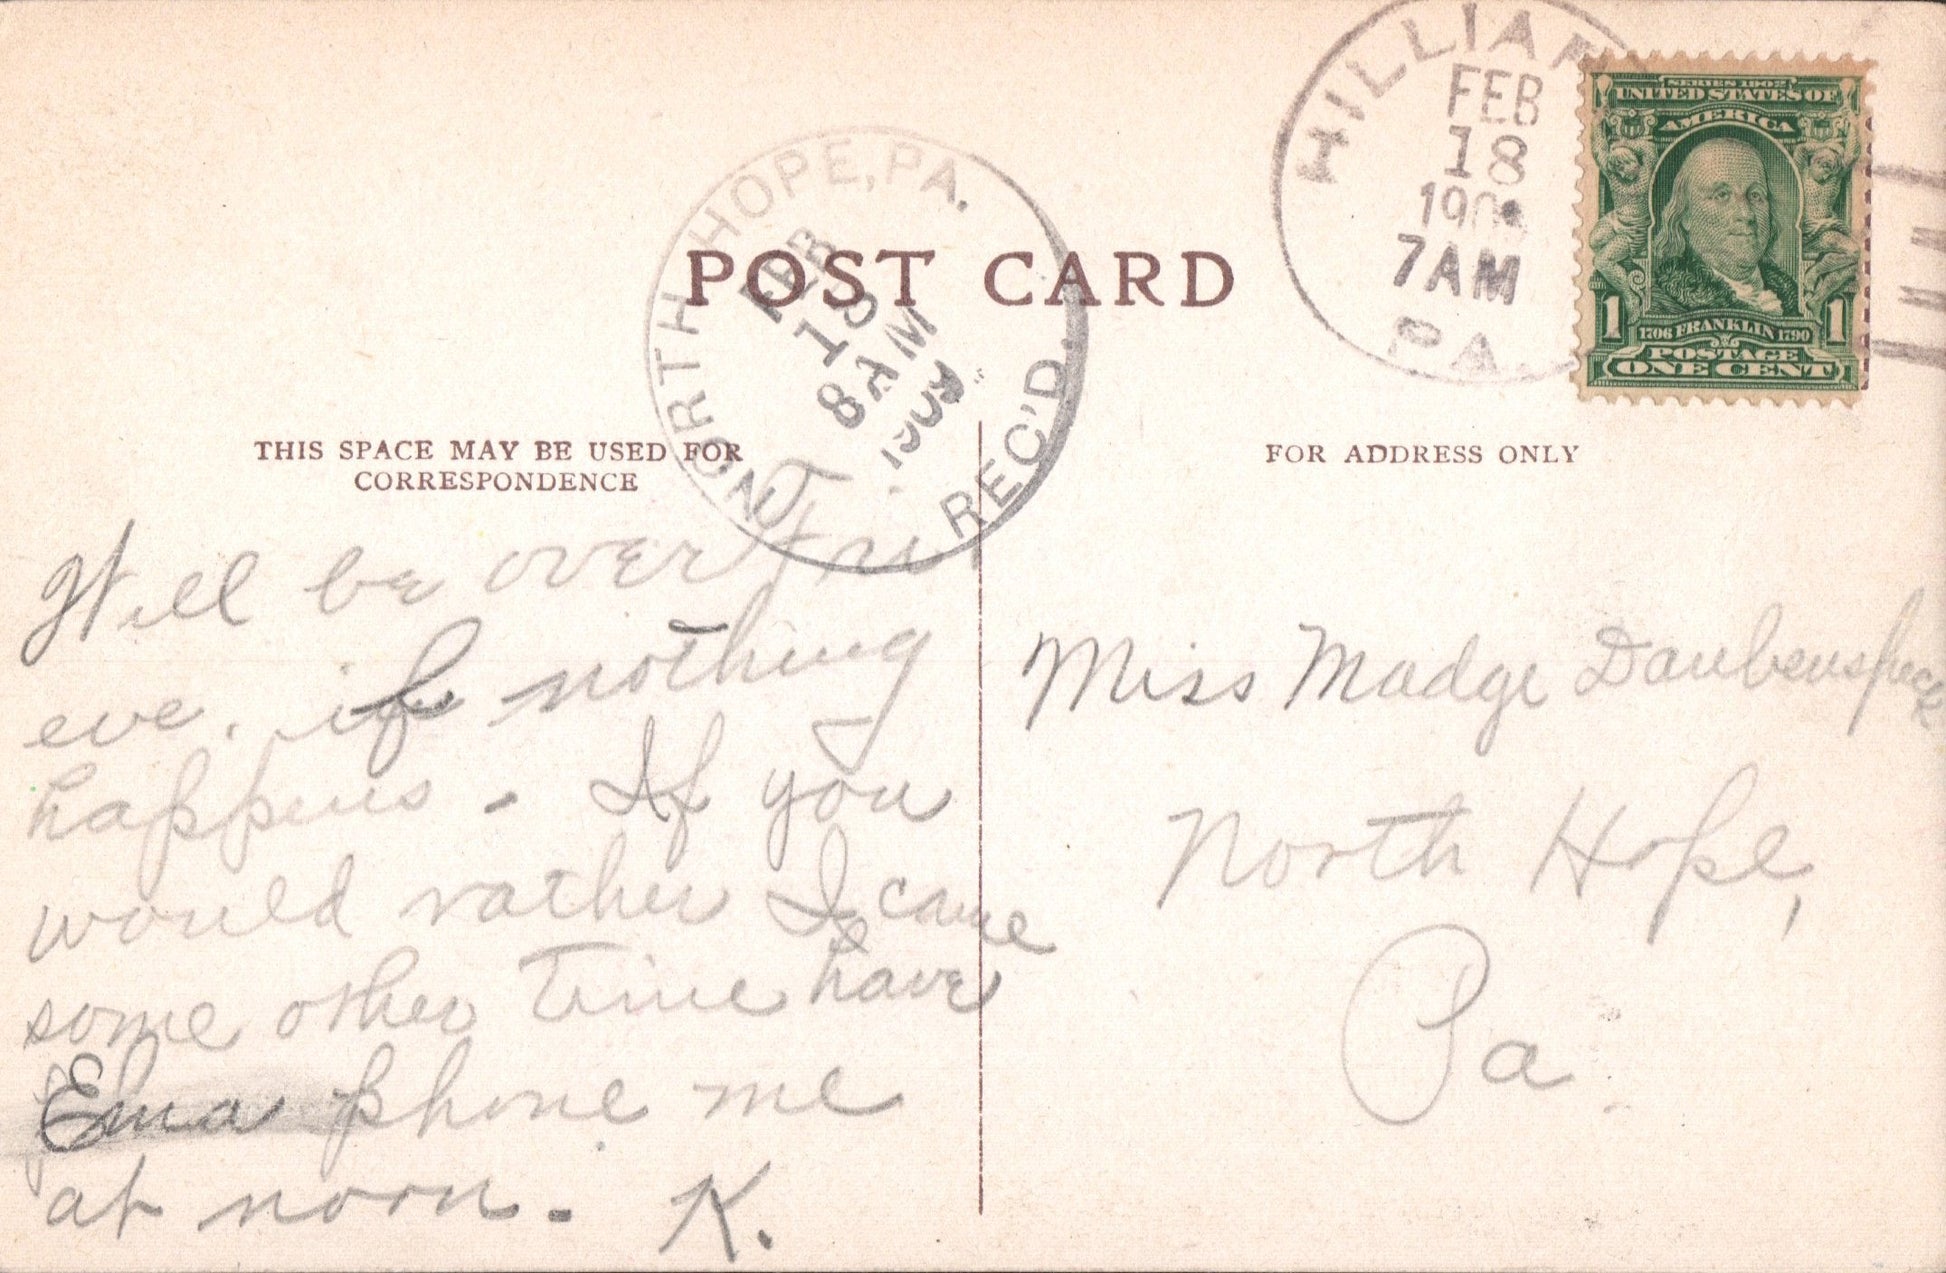 HILLIAR
FEB
18
190
7AM
PA.
SERIES 1902
UNITED STATES OF
AMERICA
1 1
1706 FRANKLIN 1790
POSTAGE
ONE CENT
NORTH HOPE, PA.
FEB
18
8AM
1909
REC'D.
POST CARD
THIS SPACE MAY BE USED FOR
CORRESPONDENCE
FOR ADDRESS ONLY
Will be over Fri
eve. if nothing
happens. If you
would rather I came
some other time have
Ema phone me
at noon. K.
Miss Madge Daubenspeck
North Hope,
Pa.